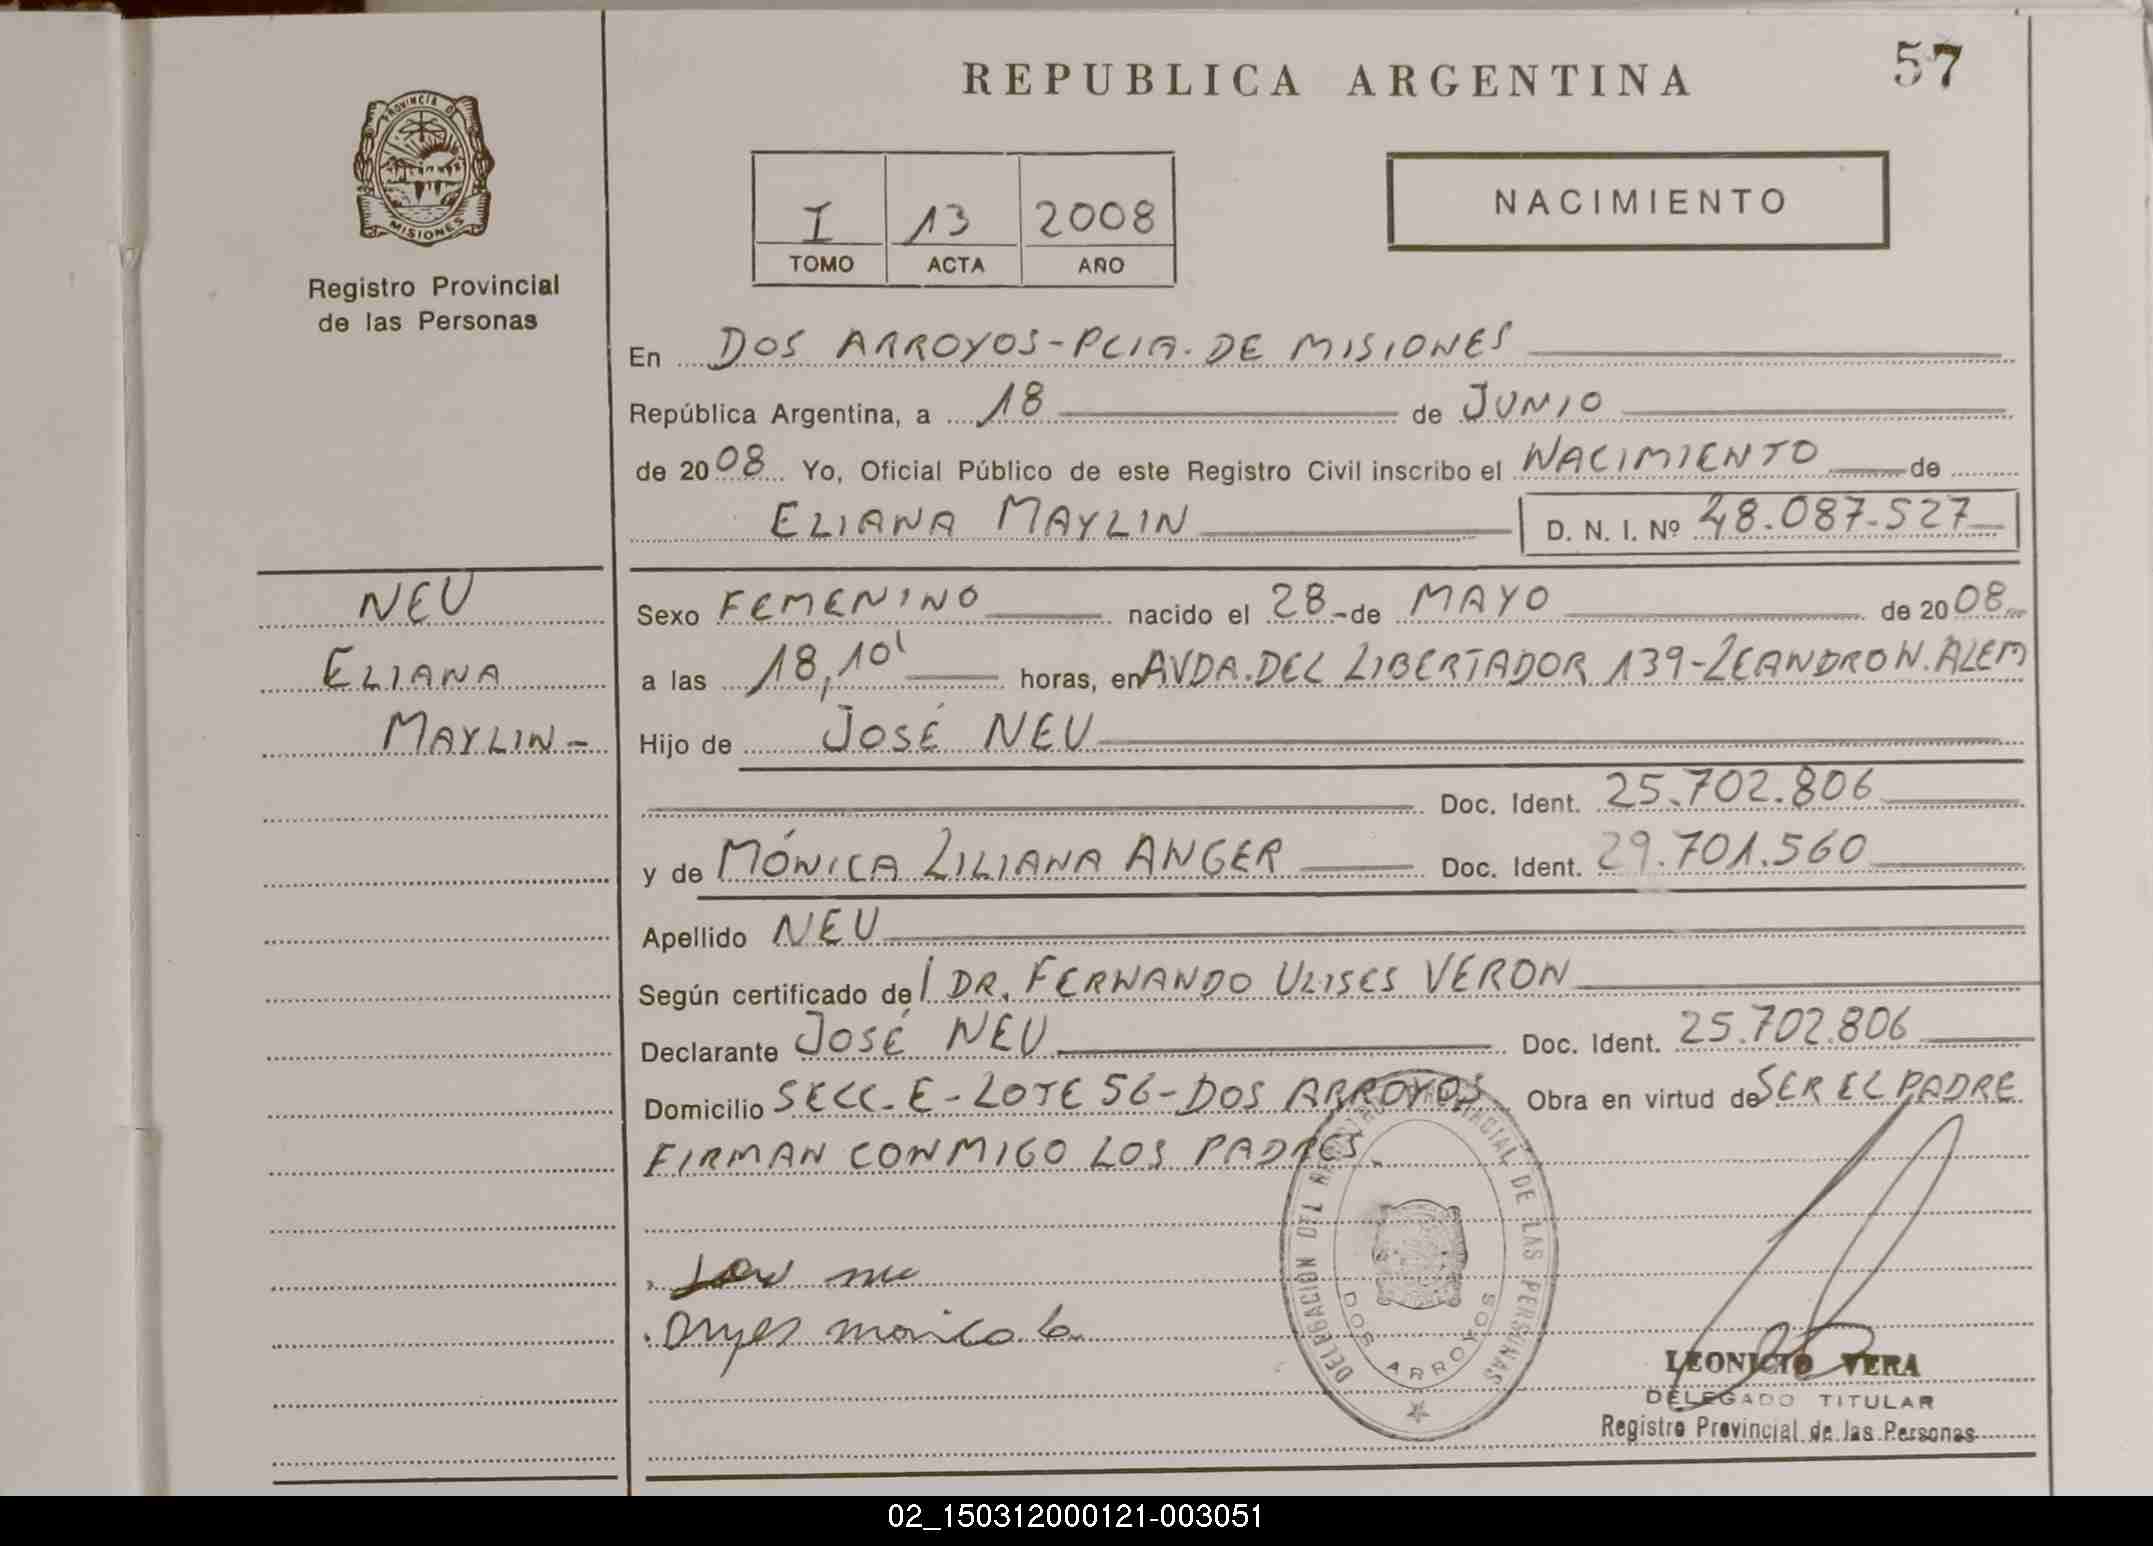 REPUBLICA ARGENTINA
57
PROVINCIA DE
MISIONES
Registro Provincial
de las Personas
I 13 2008
TOMO ACTA AÑO
NACIMIENTO
En DOS ARROYOS-PCIA. DE MISIONES
República Argentina, a 18 de JUNIO
de 2008 Yo, Oficial Público de este Registro Civil inscribo el NACIMIENTO de
ELIANA MAYLIN D. N. I. Nº 48.087.527
NEU
ELIANA
MAYLIN-
Sexo FEMENINO nacido el 28 - de MAYO de 2008
a las 18,10' horas, en AVDA. DEL LIBERTADOR 139-LEANDRO N. ALEM
Hijo de JOSÉ NEU
Doc. Ident. 25.702.806
y de MÓNICA LILIANA ANGER Doc. Ident. 29.701.560
Apellido NEU
Según certificado de/ DR. FERNANDO ULISES VERON
Declarante JOSÉ NEU Doc. Ident. 25.702.806
Domicilio SECC. E - LOTE 56 - DOS ARROYOS Obra en virtud de SER EL PADRE
FIRMAN CONMIGO LOS PADRES.
DELEGACION DEL REGISTRO PROVINCIAL DE LAS PERSONAS
DOS ARROYOS
monica
LEONICIO VERA
DELEGADO TITULAR
Registro Provincial de las Personas
02_150312000121-003051